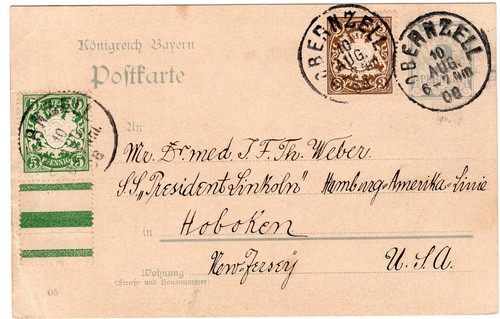 Königreich Bayern
Postkarte
OBERNZELL
10
AUG.
OBERNZELL
10
AUG.
08
5 PFENNIG 5
An
Mr. Dr med. J. F. Th. Weber.
S.S. „President Linkoln" Hamburg-Amerika-Linie
in Hoboken
New-Jersey U. S. A.
Wohnung
(Straße und Hausnummer)
05